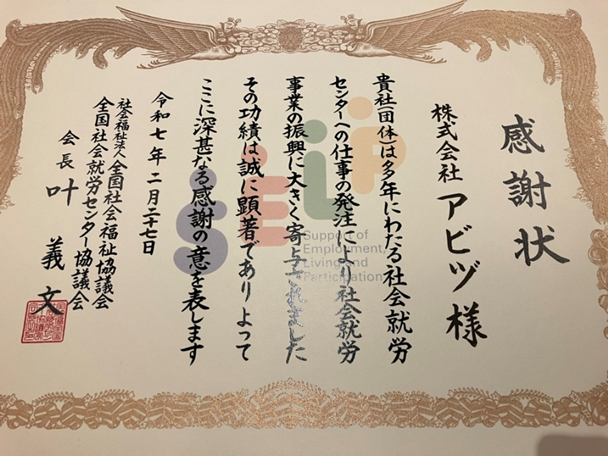 感謝状
株式会社 アビヅ様
貴社(団体)は多年にわたる社会就労
センターへの仕事の発注により社会就労
事業の振興に大きく寄与されました
その功績は誠に顕著でありよって
ここに深甚なる感謝の意を表します
令和七年二月二十七日
社会福祉法人 全国社会福祉協議会
全国社会就労センター協議会
会長 叶 義文
SELP
Support of
Employment,
Living and
Participation